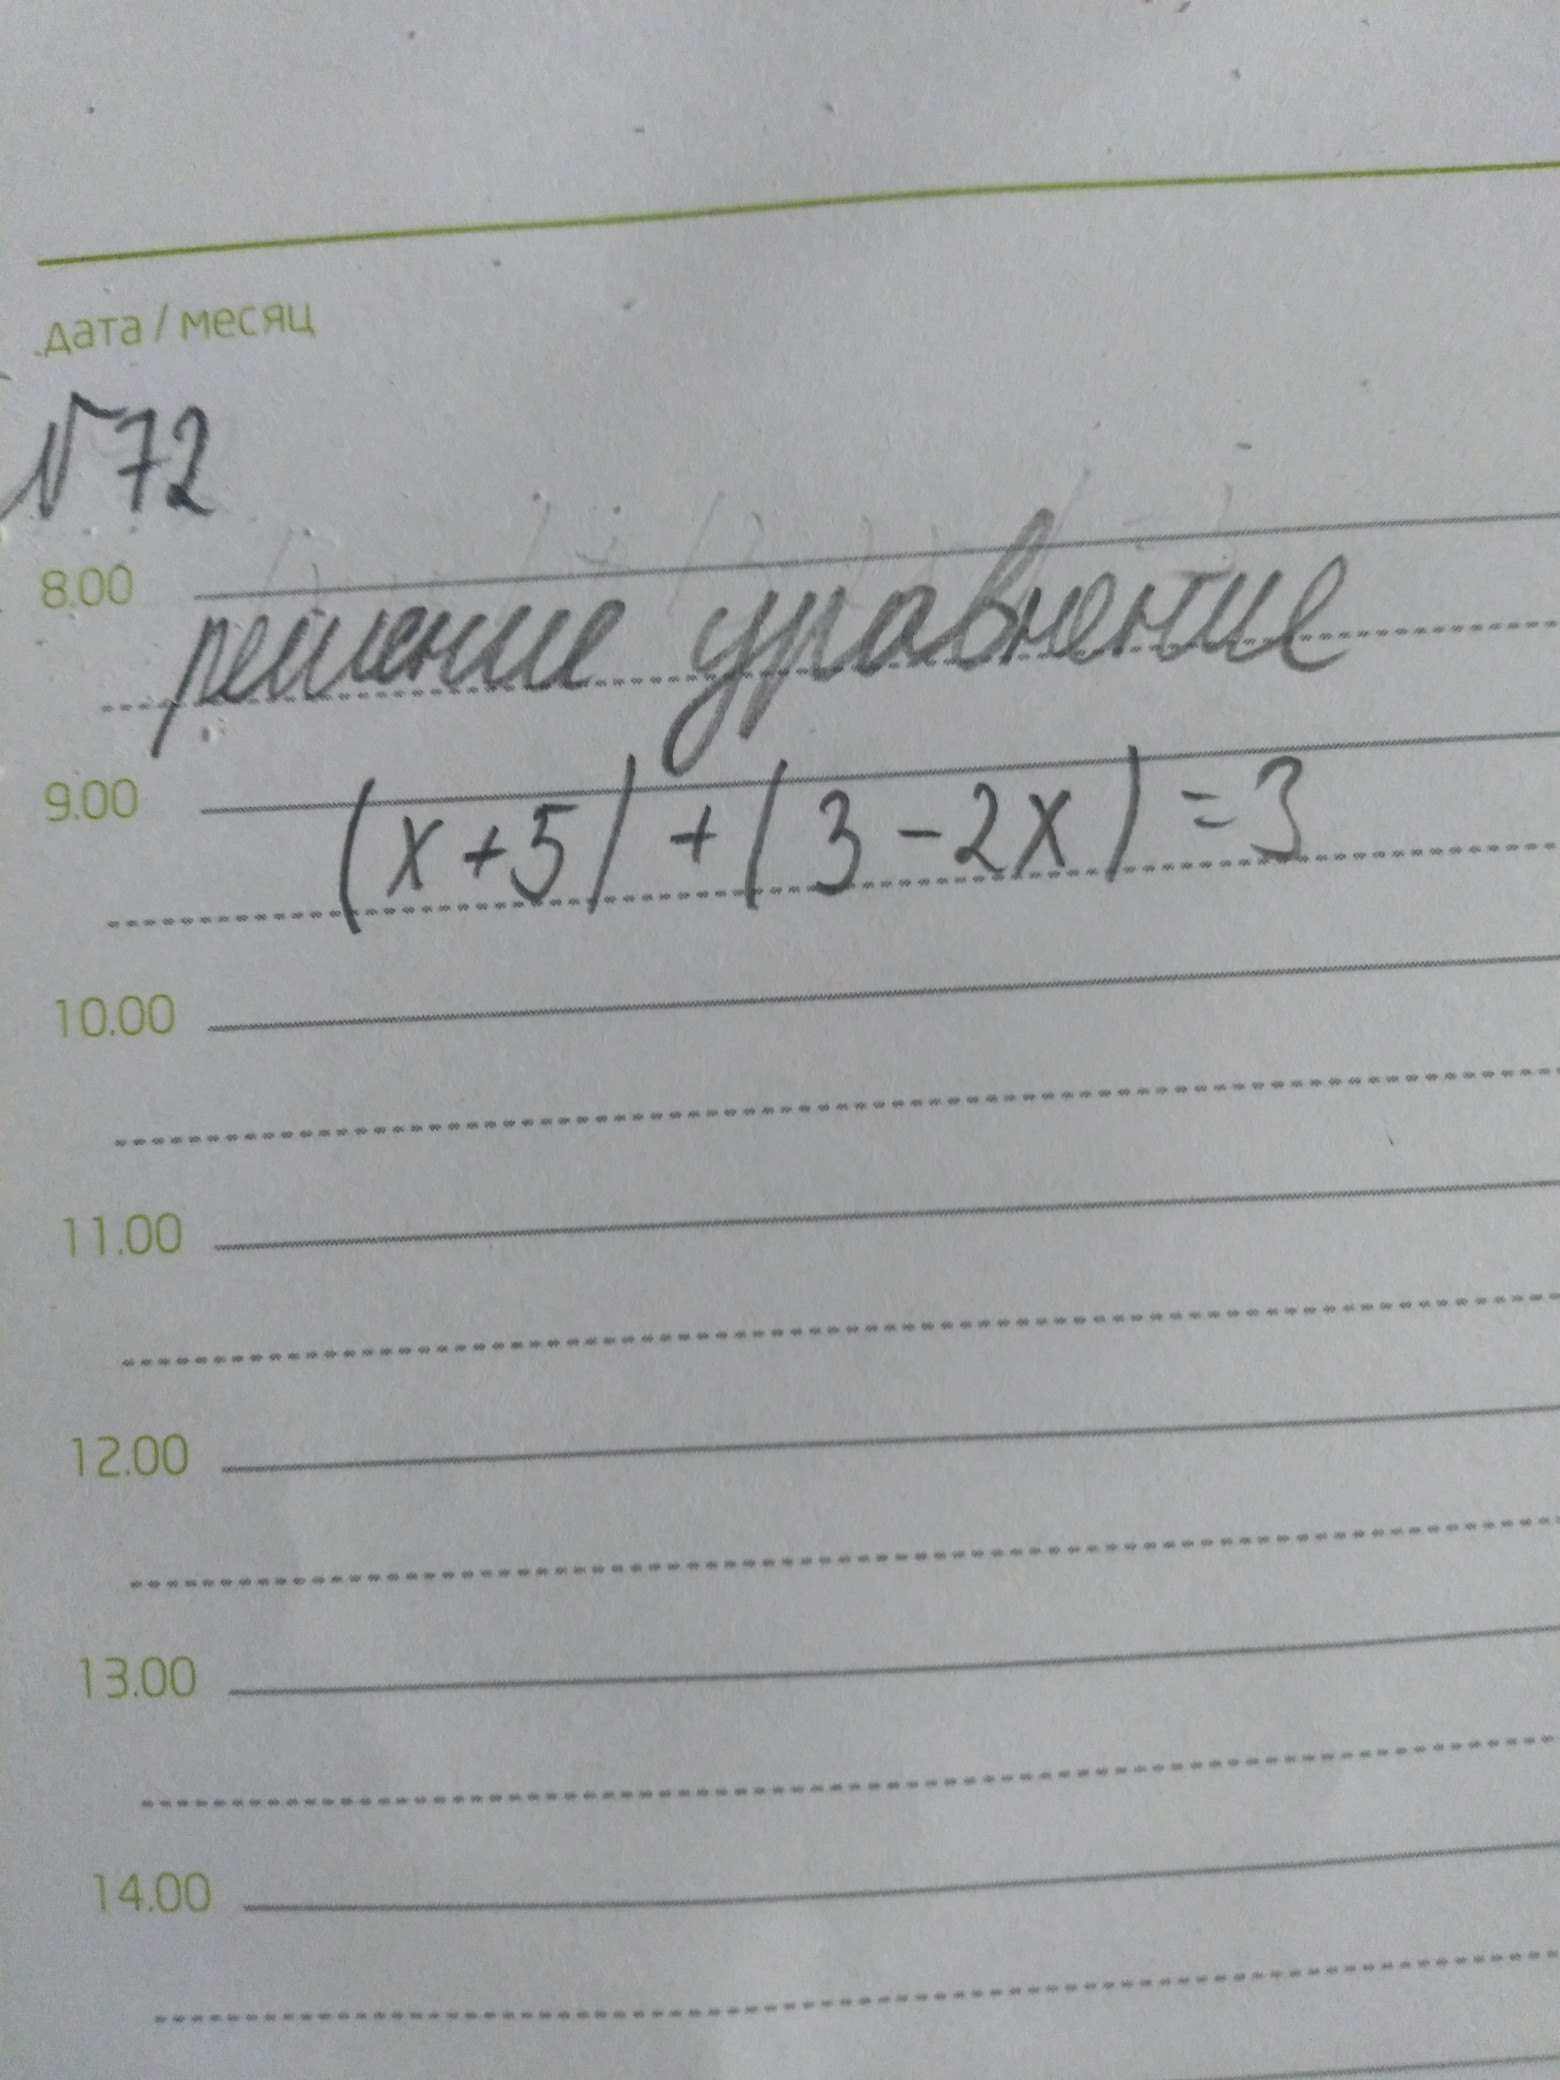 дата / месяц
№72
8.00
решение уравнение
9.00
|x+5| + |3-2x| = 3
10.00
11.00
12.00
13.00
14.00